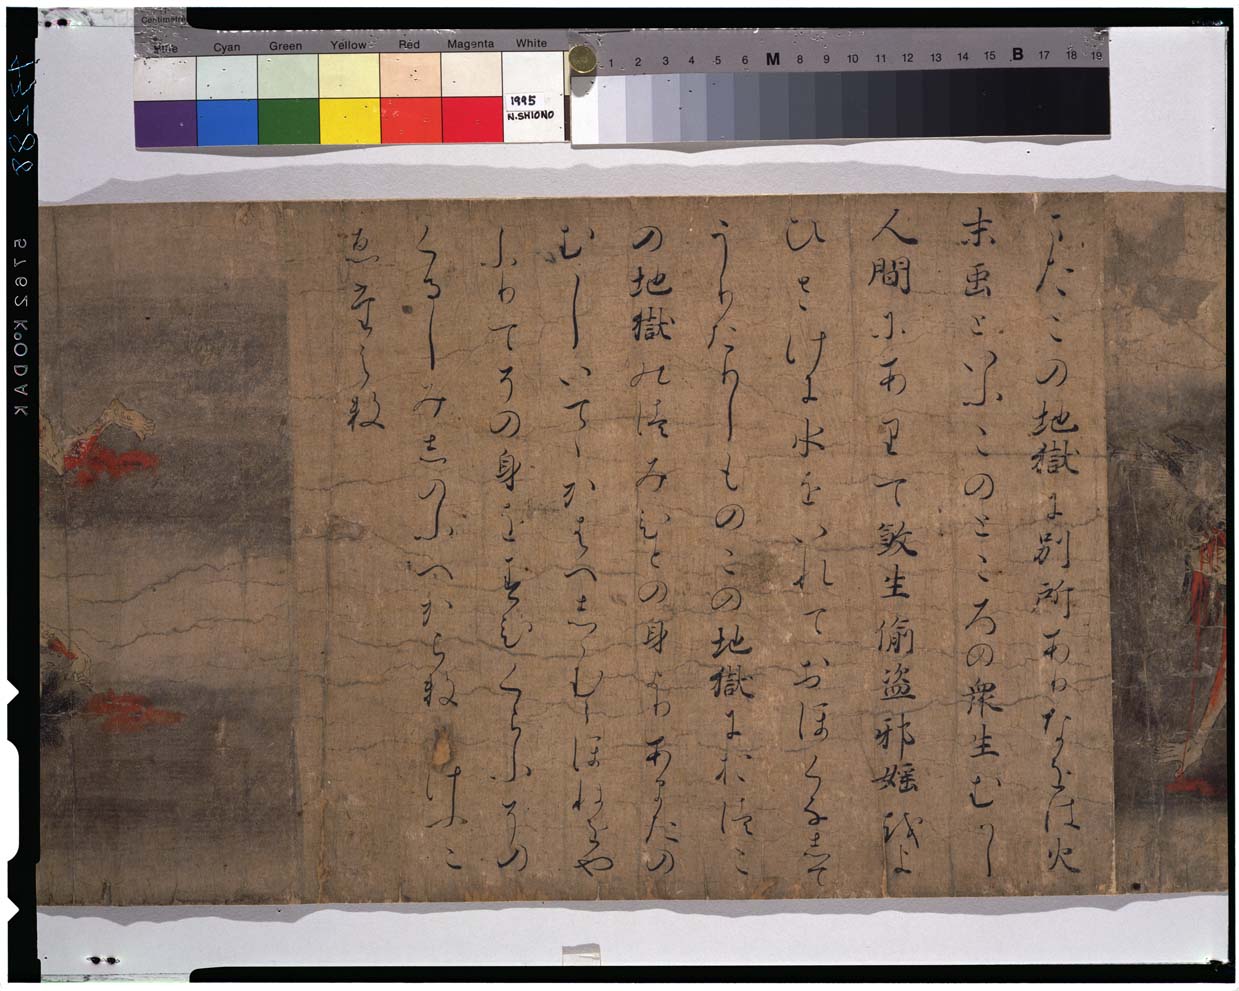 Centimetres
Blue Cyan Green Yellow Red Magenta White
1995
N.SHIONO
1 2 3 4 5 6 M 8 9 10 11 12 13 14 15 B 17 18 19
またこの地獄に別所ありなをは火
末虫といふこのところの衆生むかし
人間にありて殺生偸盗邪婬或よ
ひさけに水をいれておほくなして
うりたりしものこの地獄におつこ
の地獄のつみひとの身よりあまたの
むしいてゝかはへしゝむらほねをや
ふりてその身をすひくらふその
くるしみしのふへからす けふこ
ゑ
43288
5762 KODAK